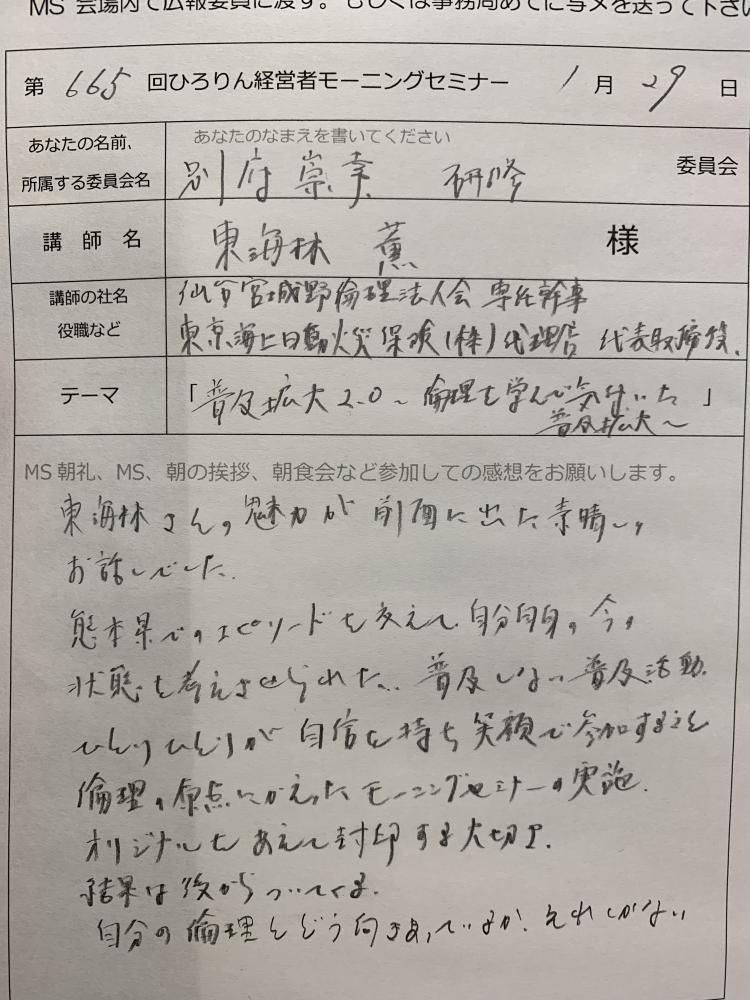 MS 会場内で広報委員に渡す。もしくは事務局あてに写メを送って下さい
第 665 回ひろりん経営者モーニングセミナー 1 月 29 日
あなたの名前、
所属する委員会名
あなたのなまえを書いてください
別府 崇幸 研修 委員会
講 師 名 東海林 薫 様
講師の社名
役職など
仙台宮城野倫理法人会 専任幹事
東京海上日動火災保険(株)代理店 代表取締役.
テーマ 「普及拡大2.0~倫理を学んで気付いた
普及拡大~」
MS 朝礼、MS、朝の挨拶、朝食会など参加しての感想をお願いします。
東海林さんの魅力が前面に出た素晴しい
お話しでした.
熊本県でのエピソードを交えて自分自身の今の
状態を考えさせられた.. 普及しない普及活動.
ひとりひとりが自信を持ち笑顔で参加すること
倫理の原点にかえったモーニングセミナーの実施.
オリジナルをあえて封印する大切さ.
結果は後からついてくる.
自分の倫理とどう向きあっているか. それしかない